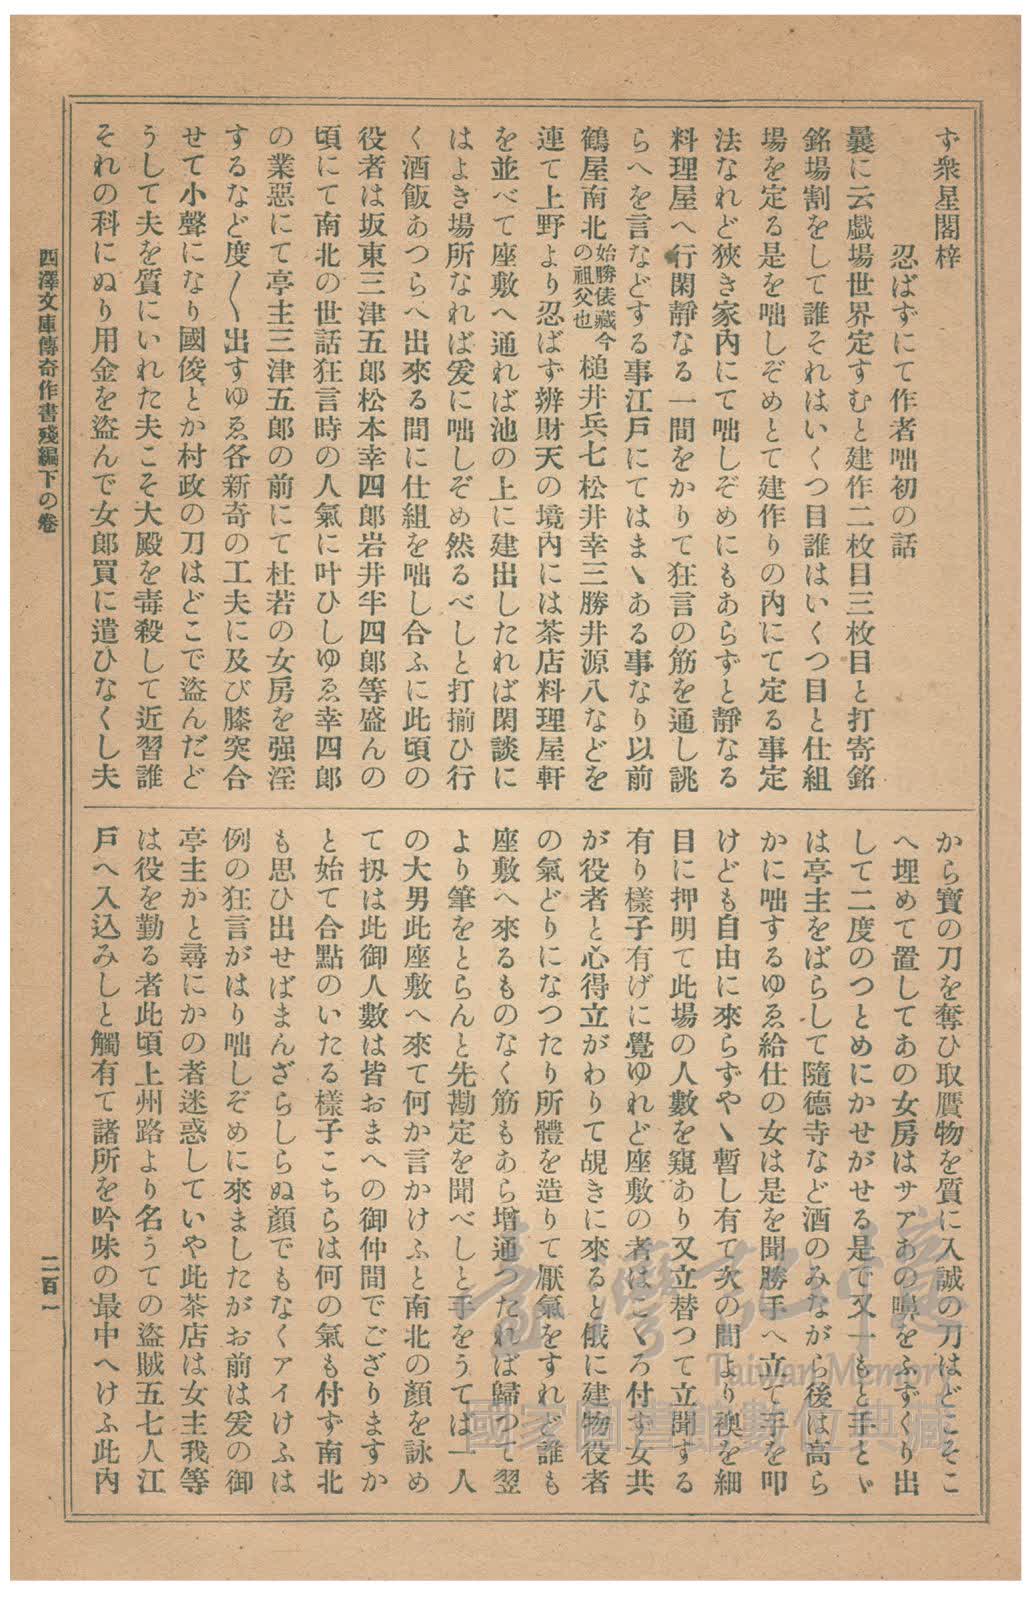 ず衆星閣梓
忍ばずにて作者咄初の話
曩に云戯場世界定すむと建作二枚目三枚目と打寄銘
銘場割をして誰それはいくつ目誰はいくつ目と仕組
場を定る是を咄しぞめとて建作りの内にて定る事定
法なれど狹き家內にて咄しぞめにもあらずと靜なる
料理屋へ行閑靜なる一間をかりて狂言の筋を通し誂
らへを言などする事江戸にてはまゝある事なり以前
鶴屋南北始勝俵藏今の祖父也槌井兵七松井幸三勝井源八などを
連て上野より忍ばず辨財天の境內には茶店料理屋軒
を並べて座敷へ通れば池の上に建出したれば閑談に
はよき場所なれば爰に咄しぞめ然るべしと打揃ひ行
く酒飯あつらへ出來る間に仕組を咄し合ふに此頃の
役者は坂東三津五郎松本幸四郎岩井半四郎等盛んの
頃にて南北の世話狂言時の人氣に叶ひしゆゑ幸四郎
の業惡にて亭主三津五郎の前にて杜若の女房を强淫
するなど度〱出すゆゑ各新奇の工夫に及び膝突合
せて小聲になり國俊とか村政の刀はどこで盜んだど
うして夫を質にいれた夫こそ大殿を毒殺して近習誰
それの科にぬり用金を盜んで女郎買に遣ひなくし夫
から寳の刀を奪ひ取贋物を質に入誠の刀はどこそこ
へ埋めて置してあの女房はサアあの嚊をふずくり出
して二度のつとめにかせがせる是で又一もと手とゞ
は亭主をばらして隨德寺など酒のみながら後は高ら
かに咄するゆゑ給仕の女は是を聞勝手へ立て手を叩
けども自由に來らずやゝ暫し有て次の間より襖を細
目に押明て此場の人數を窺あり又立替つて立聞する
有り樣子有げに覺ゆれど座敷の者はこゝろ付ず女共
が役者と心得立がわりて覘きに來ると俄に建物役者
の氣どりになつたり所體を造りて厭氣をすれど誰も
座敷へ來るものなく筋もあら增通つたれば歸つて翌
より筆をとらんと先勘定を聞べしと手をうてば一人
の大男此座敷へ來て何か言かけふと南北の顏を詠め
て扨は此御人數は皆おまへの御仲間でござりますか
と始て合點のいたる樣子こちらは何の氣も付ず南北
も思ひ出せばまんざらしらぬ顏でもなくアイけふは
例の狂言がはり咄しぞめに來ましたがお前は爰の御
亭主かと尋にかの者迷惑していや此茶店は女主我等
は役を勤る者此頃上州路より名うての盜賊五七人江
戸へ入込みしと觸有て諸所を吟味の最中へけふ此內
四澤文庫傳奇作書殘編下の卷
二百一
臺灣記憶
Taiwan Memory
國家圖書館數位典藏